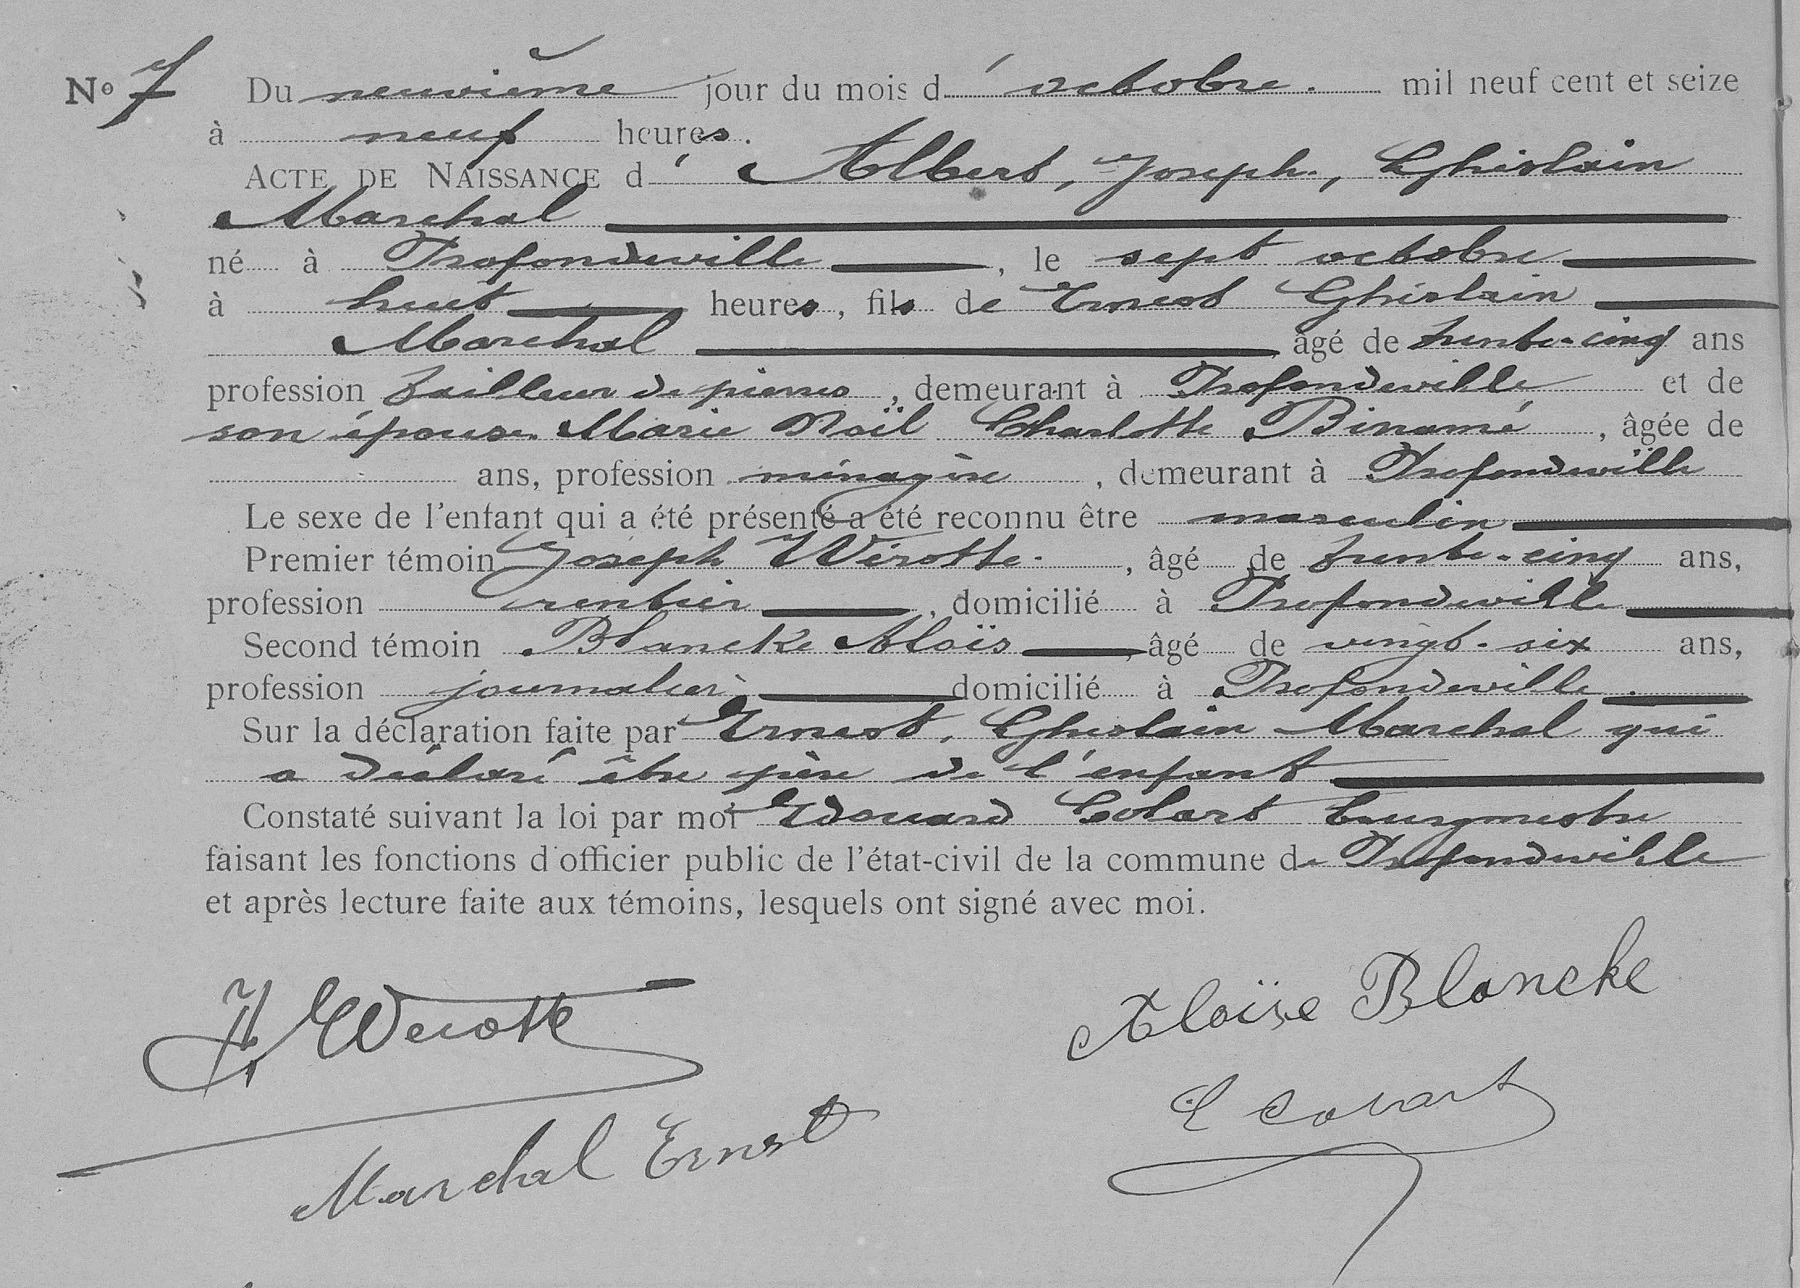 No 7 Du neuvième jour du mois d' octobre. mil neuf cent et seize
à neuf heures.
ACTE DE NAISSANCE d' Albert, Joseph, Ghislain
Marchal
né à Profondeville, le sept octobre
à huit heures, fils de Ernest Ghislain
Marchal âgé de trente-cinq ans
profession tailleur de pierres, demeurant à Profondeville et de
son épouse Marie Noël Charlotte Binamé, âgée de
ans, profession ménagère, demeurant à Profondeville
Le sexe de l'enfant qui a été présenté a été reconnu être masculin
Premier témoin Joseph Wérotte, âgé de trente-cinq ans,
profession rentier, domicilié à Profondeville
Second témoin Blancke Aloïs, âgé de vingt-six ans,
profession journalier, domicilié à Profondeville.
Sur la déclaration faite par Ernest, Ghislain Marchal qui
a déclaré être père de l'enfant
Constaté suivant la loi par moi Edouard Colart bourgmestre
faisant les fonctions d'officier public de l'état-civil de la commune de Profondeville
et après lecture faite aux témoins, lesquels ont signé avec moi.
J. Werotte
Aloïse Blancke
E Colart
Marchal Ernest